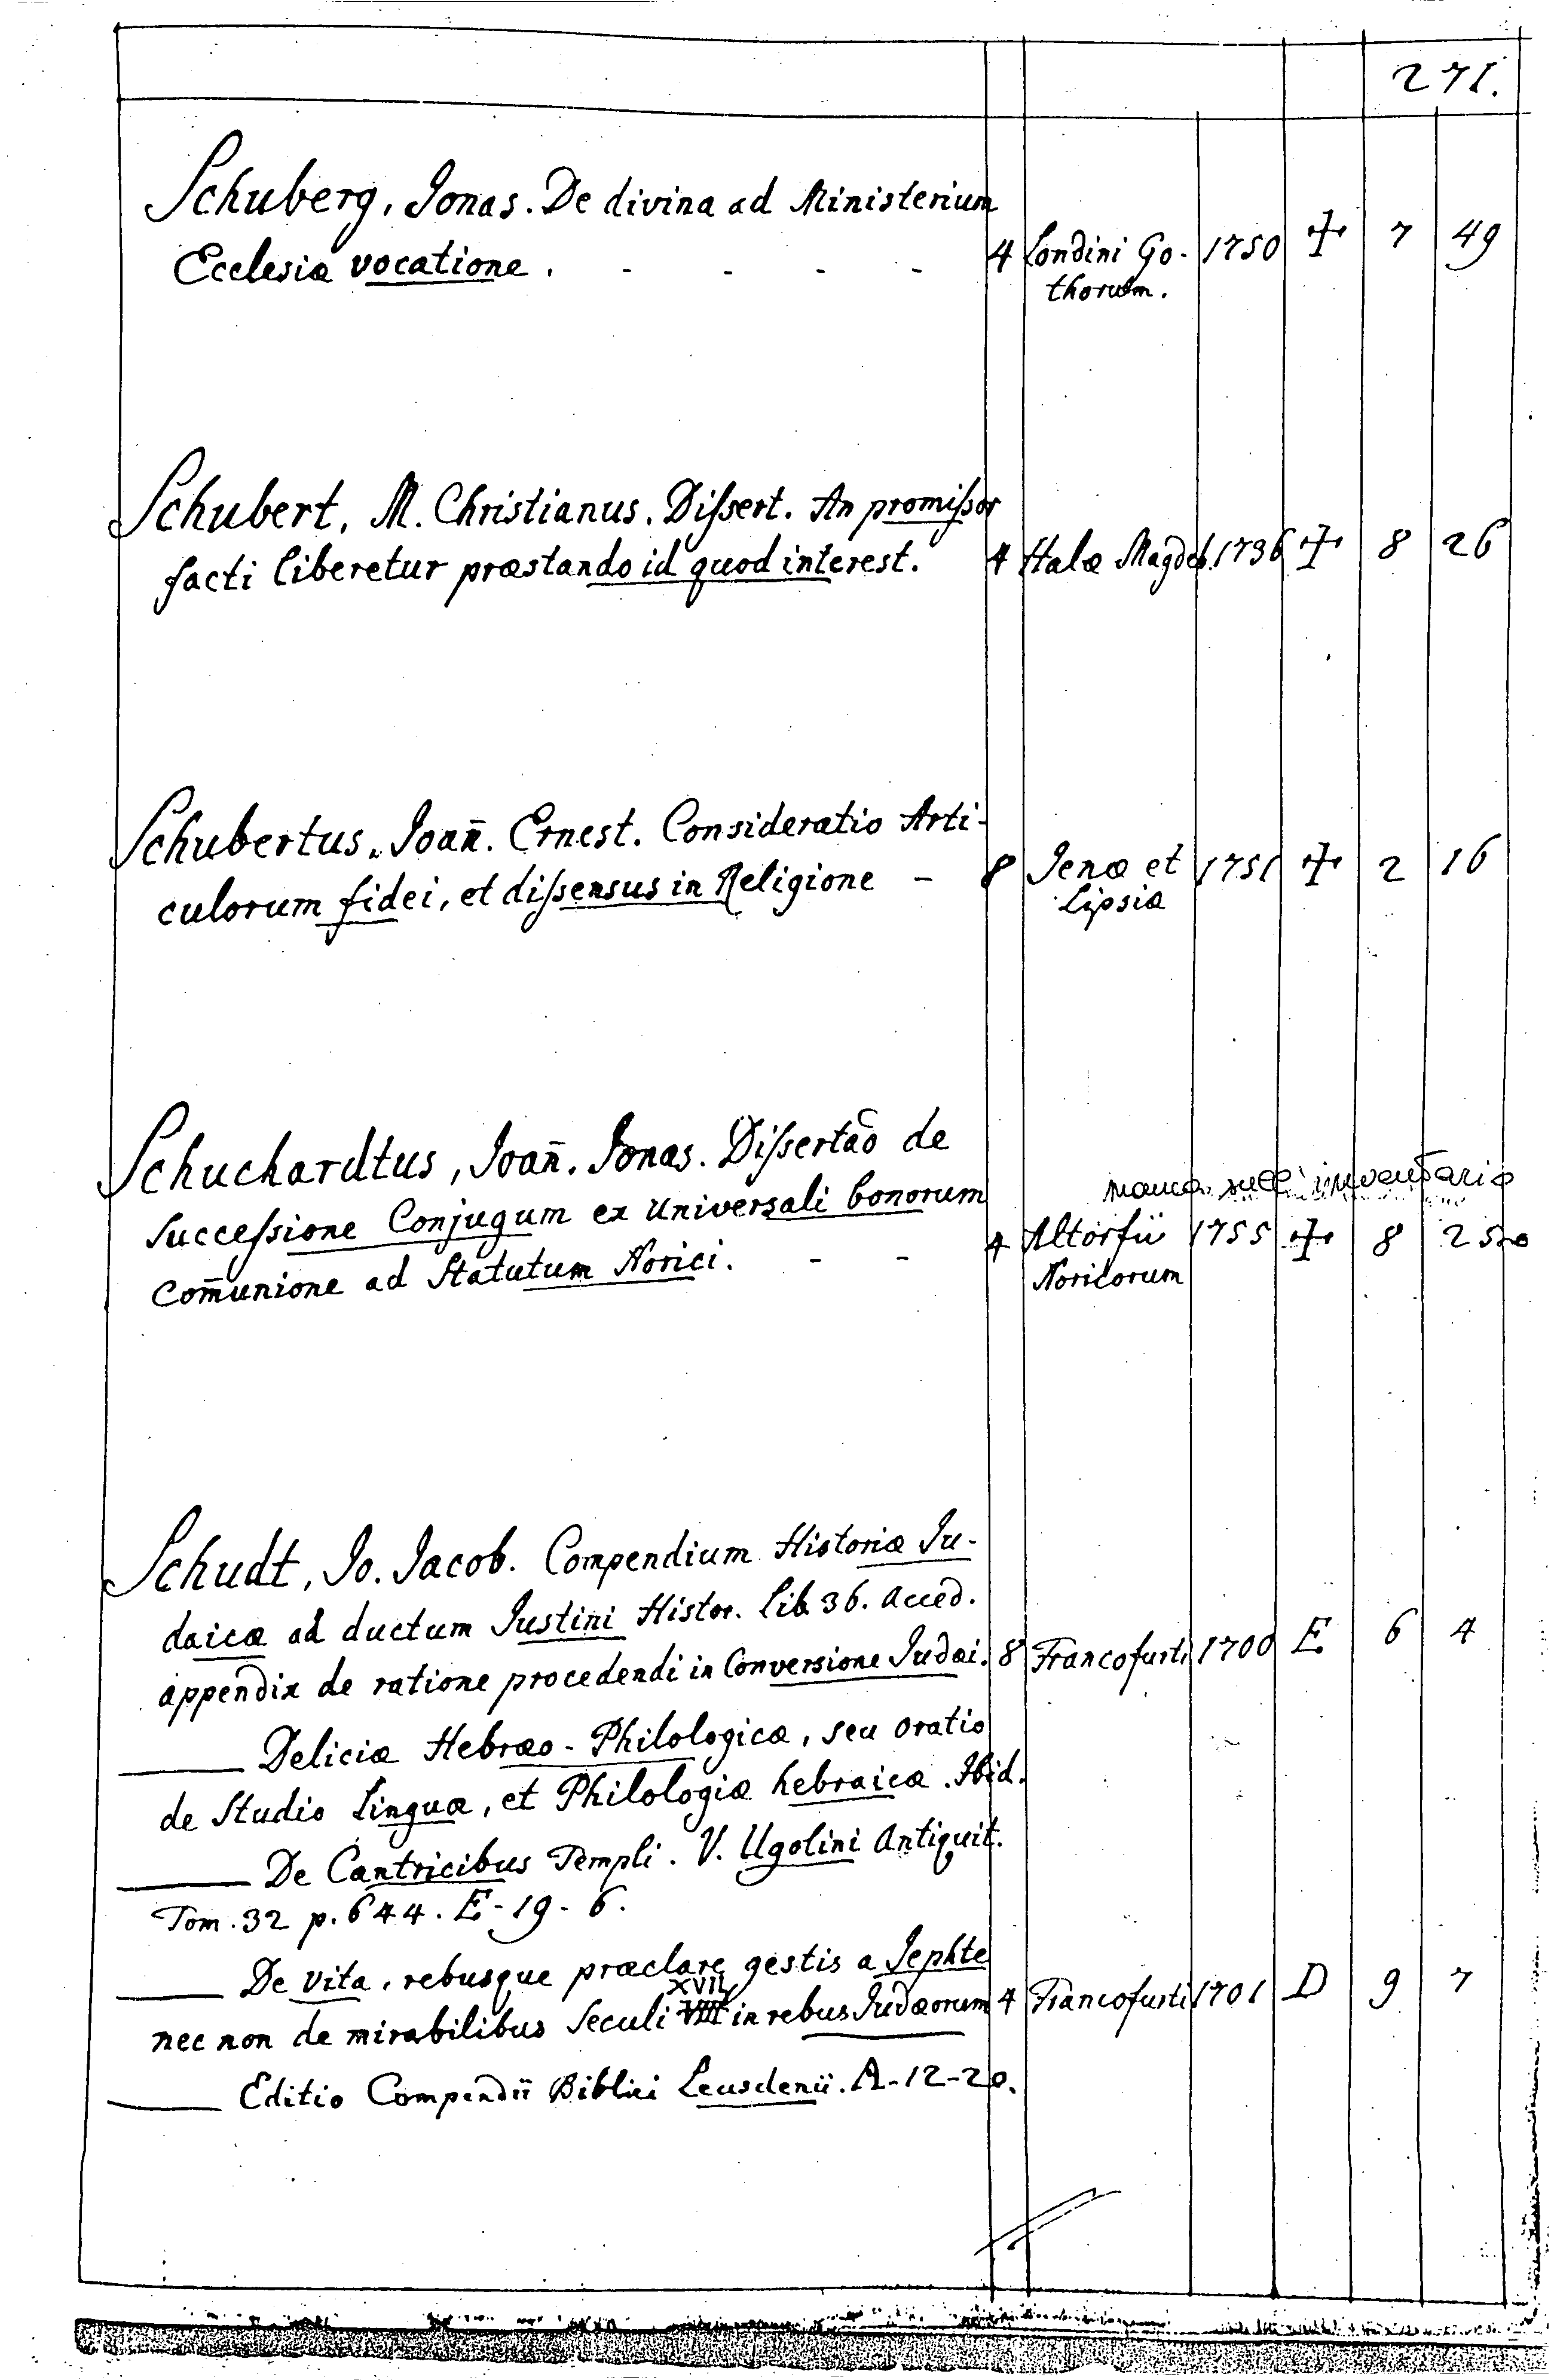 271.
Schuberg, Jonas. De divina ad Ministerium
Ecclesiæ vocatione . - - - - 4 Londini Go- 1750 ✢ 7 49
thorum.
Schubert, M. Christianus. Diſsert. An promiſsor
facti liberetur præstando id quod interest. 4 Halæ Magdeb. 1736 ✢ 8 26
Schubertus, Joan̄. Ernest. Consideratio Arti-
culorum fidei, et diſsensus in Religione - 8 Jenæ et 1751 ✢ 2 16
Lipsiæ
Schuchardtus, Joan̄. Jonas. Diſsertāo de
manca nell' inventario
Succeſsione Conjugum ex universali bonorum
com̄unione ad Statutum Norici. - - 4 Altorfii 1755 ✢ 8 25
Noricorum
Schudt, Jo. Jacob. Compendium Historiæ Ju-
daicæ ad ductum Justini Histor. Lib. 36. acced.
appendix de ratione procedendi in Conversione Judæi. 8 Francofurti 1700 E 6 4
—— Deliciæ Hebræo-Philologicæ, seu oratio
de Studio Linguæ, et Philologiæ hebraicæ. Ibid.
—— De Cantricibus Templi. V. Ugolini Antiquit.
Tom. 32 p. 644. E-19-6.
—— De vita, rebusque præclare gestis a Jephte
nec non de mirabilibus Seculi XVII in rebus Judæorum 4 Francofurti 1701 D 9 7
—— Editio Compendii Biblici Leusdenii. A-12-20.